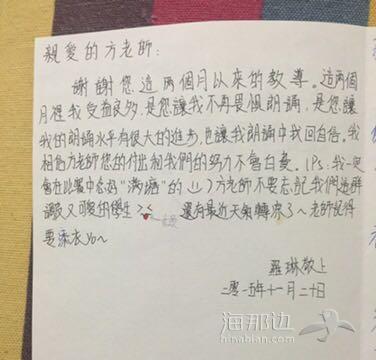 親愛的方老師：
謝謝您這兩個月以來的教導。這兩個
月裡我受益良多，是您讓我不再畏懼朗誦，是您讓
我的朗誦水平有很大的進步，也讓我朗誦中找回自信。我
相信方老師您的付出和我們的努力不會白費。(P.s:我一定
會在比賽中念好"滿塘"的 ü) 方老師不要忘記我們這群
調皮又可愛的學生 還有最近天氣轉涼了~老師記得
要添衣yo~
羅琳敬上
二零一五年十一月二十日
海那边
hinabian.com